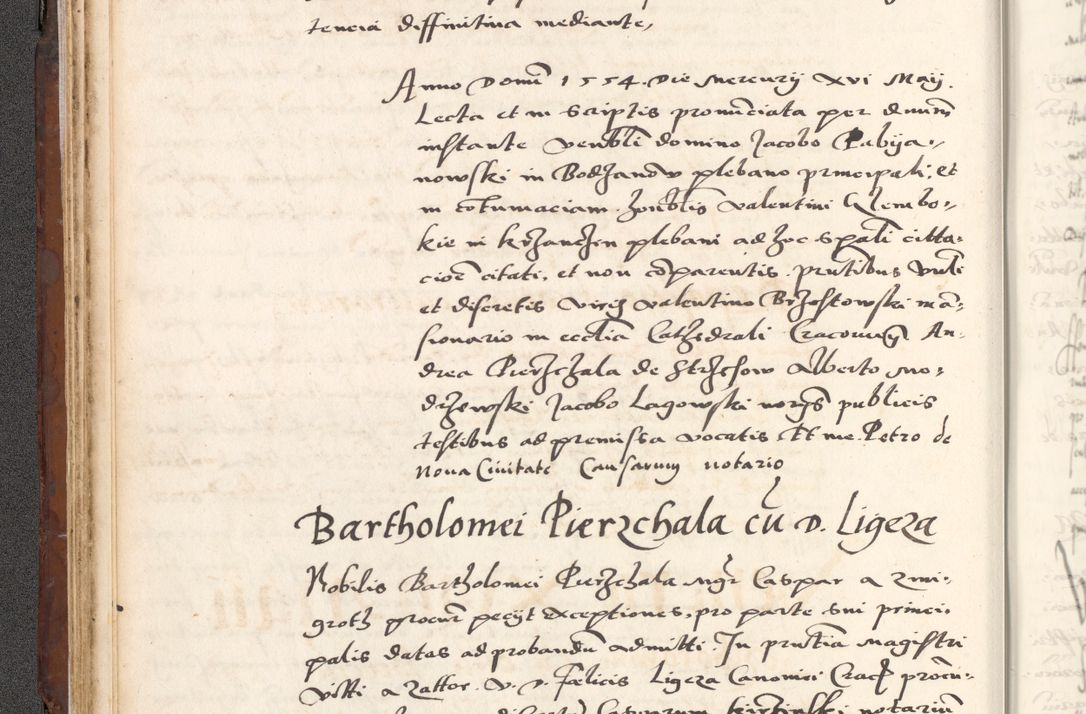 tencia diffinitiua mediante,
Anno Domī 1554. Die Mercurij XVI Maij.
Lecta et in Scriptis pronūciata per dnum̄
instante venbli domino Jacobo Pabija-,
nowski in Bodzanow plebano principali, et
in cōtumaciam honblis Valentini Glembo-,
kie in krzanczin plebani ad hoc spāli citta-
cioē citati, et non cōparentis. prntibus vnli
et discretis viris Valentino Brzostowski mā-
sionario in ecclia Cathedrali Cracouien An-
drea Pierzchala de Strzesow Alberto Mo-
drzewski Jacobo Lagowski norijs publicis
testibus ad premissa vocatis Et me Petro de
Noua Ciuitate Causarum notario
Bartholomei Pierzchala cū D. Ligeza
Nobilis Bartholomei Pierzchala mgr Caspar a Zmi-,
groth procur petijt exceptiones, pro parte sui princi-
palis datas ad probandū admitti. In prntia Magistri
Viti a Zattor. V. D. Fœlicis Ligeza Canonici Crac procu-
Causarum notarium